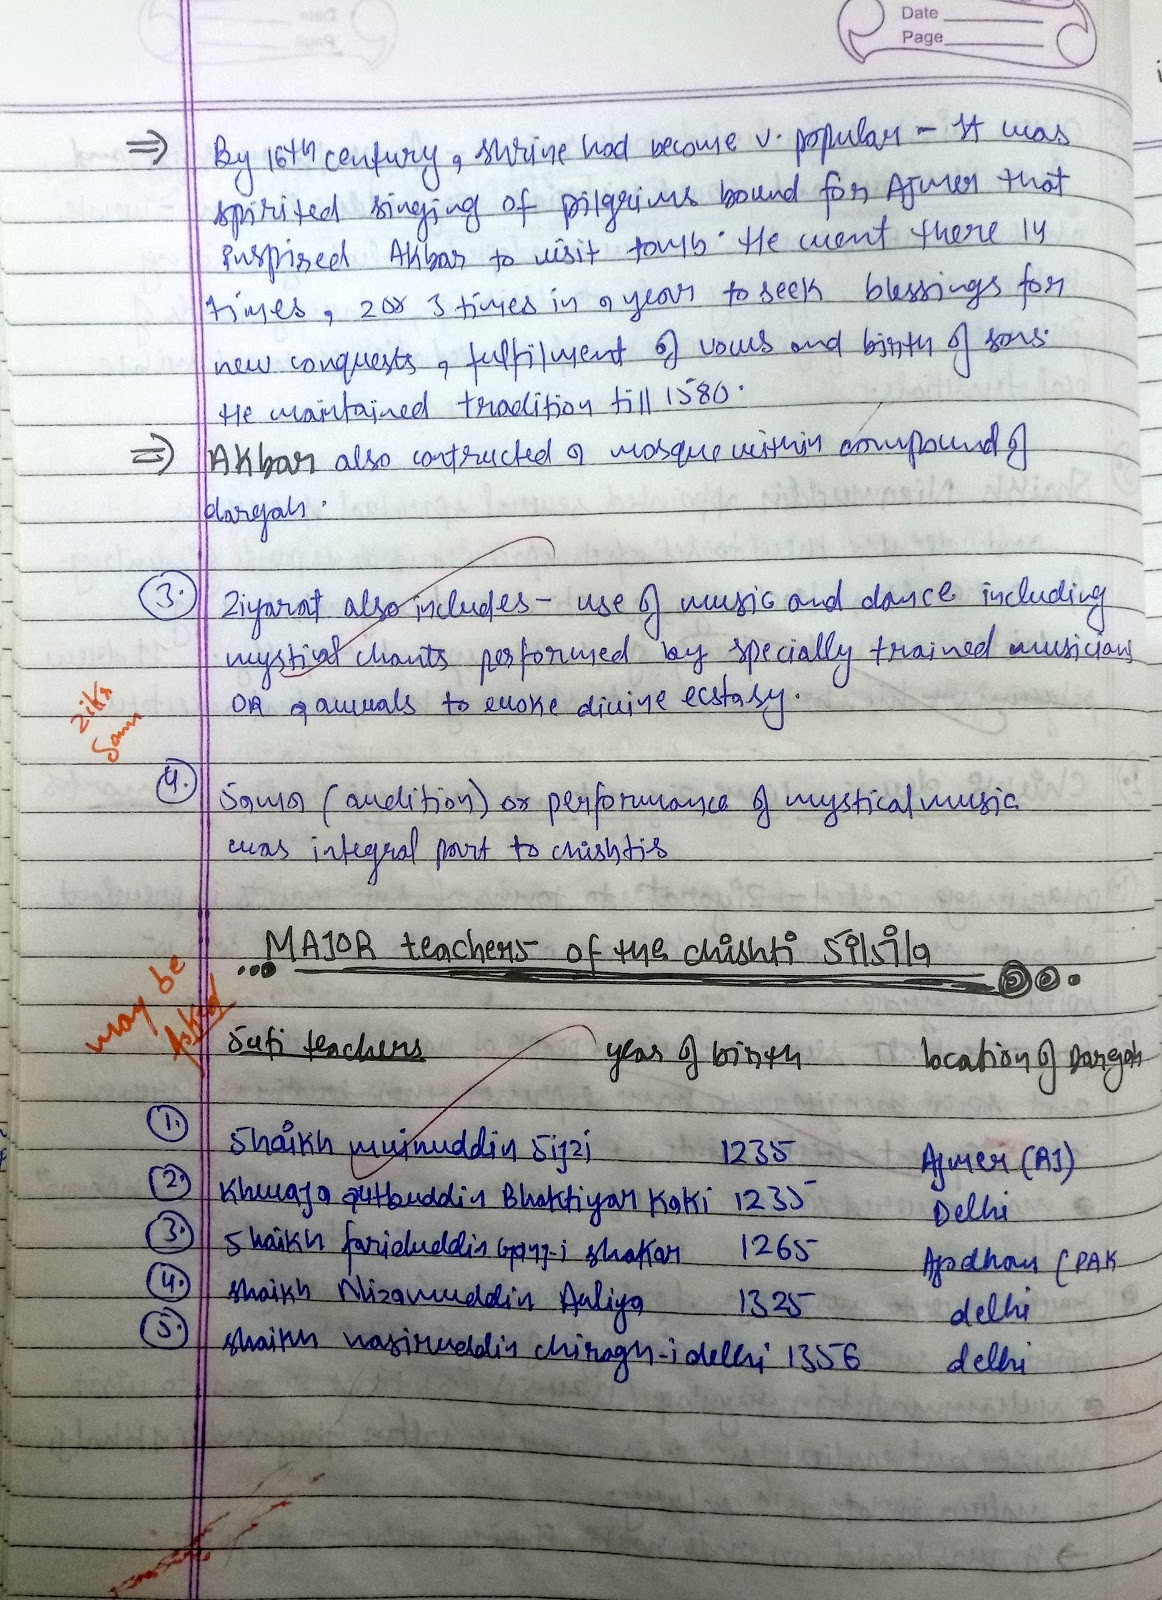 Date
Page
⇒ By 16th century, shrine had become v. popular - It was
spirited singing of pilgrims bound for Ajmer that
inspired Akbar to visit tomb. He went there 14
times, 2 or 3 times in a year to seek blessings for
new conquests, fulfilment of vows and birth of sons.
He maintained tradition till 1580.
⇒ Akbar also contructed a mosque within compound of
dargah.
3. Ziyarat also includes - use of music and dance including
mystical chants performed by specially trained musicians
OR qawwals to evoke divine ecstasy.
Zikr
Sama
4. Sama (audition) or performance of mystical music
was integral part to chishtis
MAJOR teachers of the chishti Silsila
may be
Asked
Sufi teachers year of birth location of Dargah
1. Shaikh muinuddin Sijzi 1235 Ajmer (RJ)
2. Khwaja qutbuddin Bhaktiyar Kaki 1235 Delhi
3. Shaikh fariduddin Ganj-i shakar 1265 Ajodhan (PAK
4. Shaikh Nizamuddin Auliya 1325 delhi
5. Shaikh nasiruddin chiragh-i delhi 1356 delhi